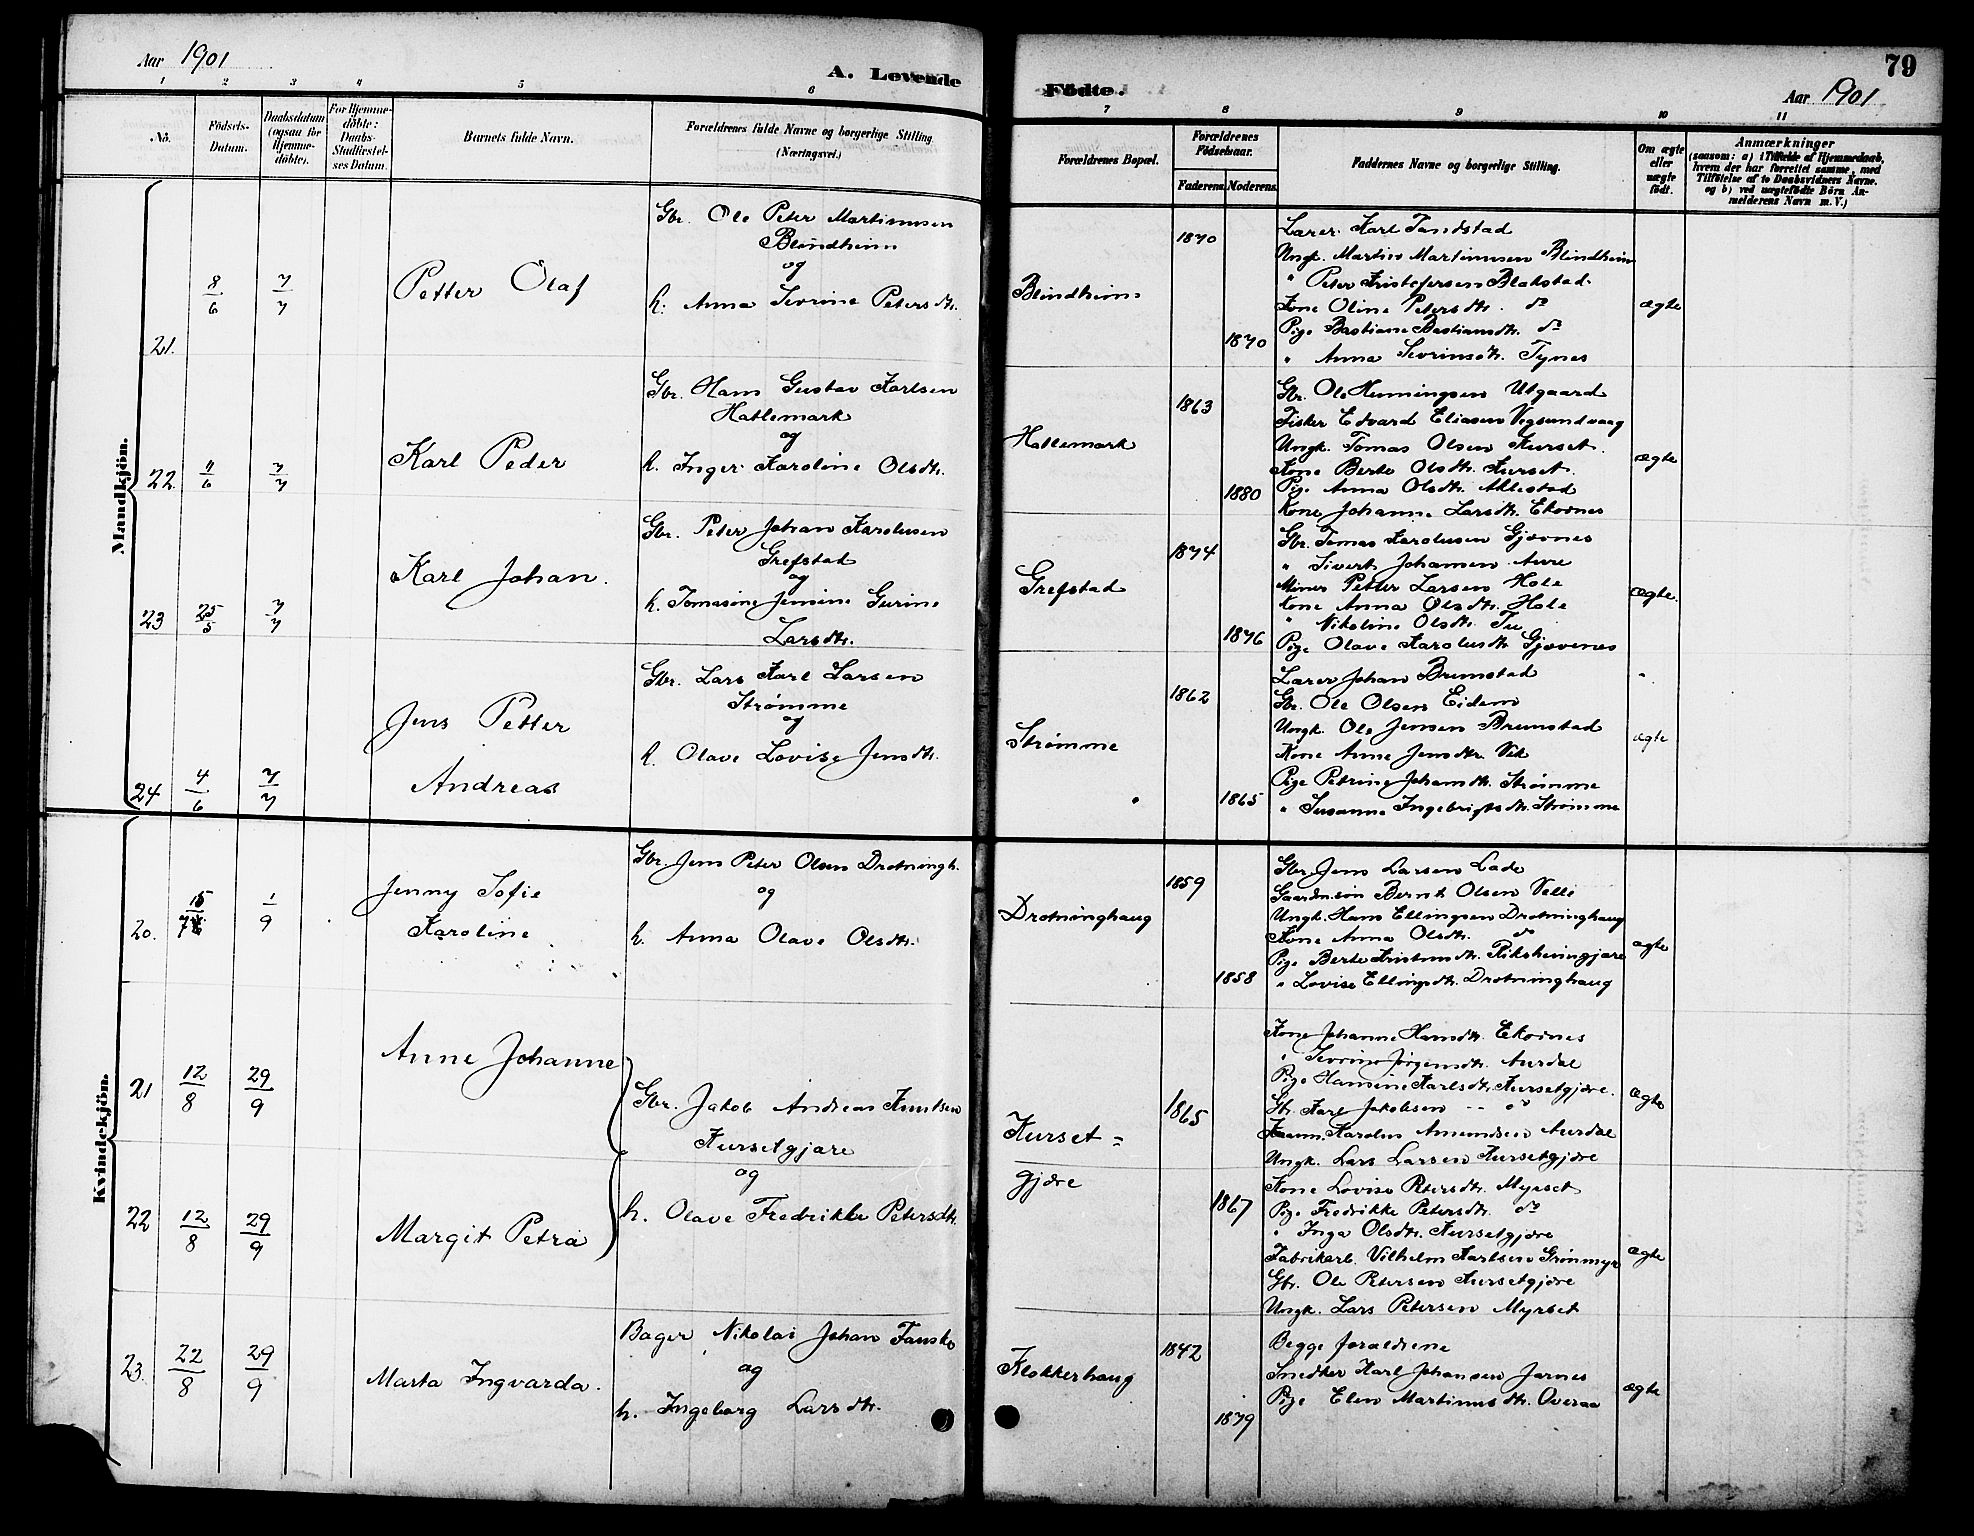 Aar 1901
A. Levende
1 2 3 4 5 6
No.
Födsels-
Datum.
Daabsdatum
(ogsaa for
Hjemme-
döbte).
For Hjemme-
döbte:
Daabs-
Stadfæstel-
ses Datum.
Barnets fulde Navn.
Forældrenes fulde Navne og borgerlige Stilling
(Næringsvei.)
Mandkjön.
21.
8/6
7/7
Petter Olaf
Gbr. Ole Peter Martinusen
Blindheim
og
h. Anna Sevrine Petersdtr.
22.
7/7
Karl Peder
Gbr. Hans Gustav Karlsen
Hatlemark
og
h. Inger Karoline Olsdtr.
23
25/5
7/7
Karl Johan.
Gbr. Peter Johan Karolusen
Grefstad
og
h. Tomasine Jensine Gurine
Larsdtr.
24
4/6
7/7
Jens Petter
Andreas
Gbr. Lars Karl Larsen
Strømme
og
h. Olave Lovise Jensdtr.
Kvindekjön.
20.
15/7
1/9
Jenny Sofie
Karoline
Gbr. Jens Peter Olsen Drotningh.
og
h. Anna Olave Olsdtr.
21
12/8
29/9
Anne Johanne
Gbr. Jakob Andreas Knutsen
Kursetgjære
og
h. Olave Fredrikke Petersdtr.
22
12/8
29/9
Margit Petra
23.
22/8
29/9
Marta Ingvarda.
Bager Nikolai Johan Fauske
og
h. Ingeborg Larsdtr.
Födte.
79
Aar 1901
7 8 9 10 11
Forældrenes Bopæl.
Forældrenes
Födselsaar.
Faderens. Moderens.
Faddernes Navne og borgerlige Stilling.
Om ægte
eller
uægte
födt.
Anmærkninger
(saasom: a) i Tilfælde af Hjemmedaab,
hvem der har forrettet samme, med
Tilföielse af to Daabsvidners Navne.
og b) ved uægtefödte Börn An-
melderens Navn m. V.)
Blindheim
1870
1870
Lærer Karl Tandstad
Ungk. Martin Martinusen Blindheim
" Peter Kristofersen Blakstad.
Kone Oline Petersdtr. do
Pige Bastiane Bastiansdtr. do
" Anna Sevrinsdtr. Tynes
ægte
Hatlemark
1863
1880
Gbr. Ole Henningsen Utgaard
Fisker Edvard Eliasen Vegsundvaag
Ungk. Tomas Olsen Kurset.
Kone Berte Olsdtr. Kurset.
Pige Anna Olsdtr. Aklestad
Kone Johanne Larsdtr. Ekornes
ægte
Grefstad
1874
1876
Gbr. Tomas Karolusen Gjævnes
" Sivert Johansen Aure
Miner Petter Larsen Hole
Kone Anna Olsdtr. Hole
" Nikoline Olsdtr. Tu
Pige Olave Karolusdtr. Gjævenes
ægte.
Strømme
1862
1865
Lærer Johan Brunstad
Gbr. Ole Olsen Eidem
Ungk. Ole Jensen Brunstad
Kone Anne Jensdtr. Vik
Pige Petrine Johansdtr. Strømme
" Susanne Ingebrigtsdtr. Strømme
ægte
Drotninghaug
1859
1858
Gbr. Jens Larsen Lade
Gaardmsøn Bernt Olsen Velle
Ungk. Hans Ellingsen Drotninghaug
Kone Anna Olsdtr. do
Pige Berte Kristensdtr. Riksheimgjære
" Lovise Ellingsdtr. Drotninghaug
ægte
Kurset-
gjære
1865
1867
Kone Johanne Hansdtr. Ekornes
" Sevrine Jørgensdtr. Aurdal
Pige Hansine Karlsdtr. Kursetgjære.
Gbr. Karl Jakobsen do
Karolus Amundsen Aurdal
Ungk. Lars Larsen Kursetgjære
ægte
Kone Lovise Petersdtr. Myrset
Pige Fredrikke Petersdtr. do
" Inga Olsdtr. Kursetgjære
Fabrikarb. Vilhelm Karlsen Grønmyr
Gbr. Ole Petersen Kursetgjære
Ungk. Lars Petersen Myrset
ægte
Klokkerhaug
1842
1879
Begge forældrene
Snedker Karl Johansen Jarnes
Pige Elen Martinusdtr. Overaa
ægte